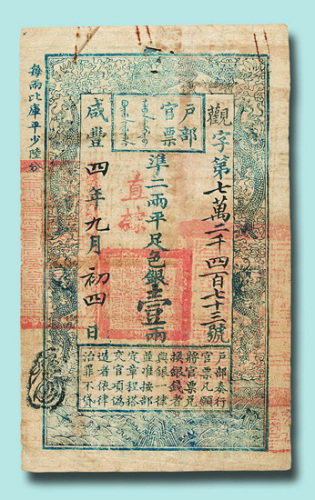 戶部
官票
觀字第七萬二千四百七十三號
準二兩平足色銀壹兩
直隸
咸豐四年九月初四日
每兩比庫平少陸分
戶部奏行
官票凡願
將官票兌
換銀錢者
與銀一律
並准按部
定章程搭
交官項偽
造者依律
治罪不貸